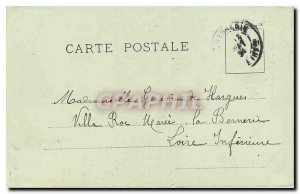 CARTE POSTALE
Mademoiselle de Hargues
Villa Roc Marie la Bernerie
Loire Inférieure